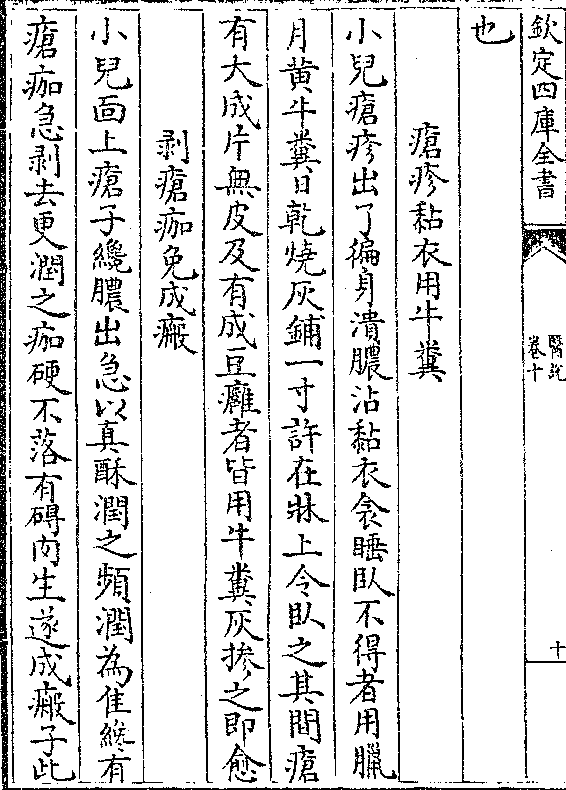 欽定四庫全書
醫說
卷十
十
也
瘡疹黏衣用牛糞
小兒瘡疹出了徧身潰膿沾黏衣衾睡臥不得者用臘
月黃牛糞日乾燒灰鋪一寸許在牀上令臥之其間瘡
有大成片無皮及有成豆癰者皆用牛糞灰摻之即愈
剥瘡痂免成瘢
小兒面上瘡子纔膿出急以真酥潤之頻潤為佳纔有
瘡痂急剥去更潤之痂硬不落有礙肉生遂成瘢子此